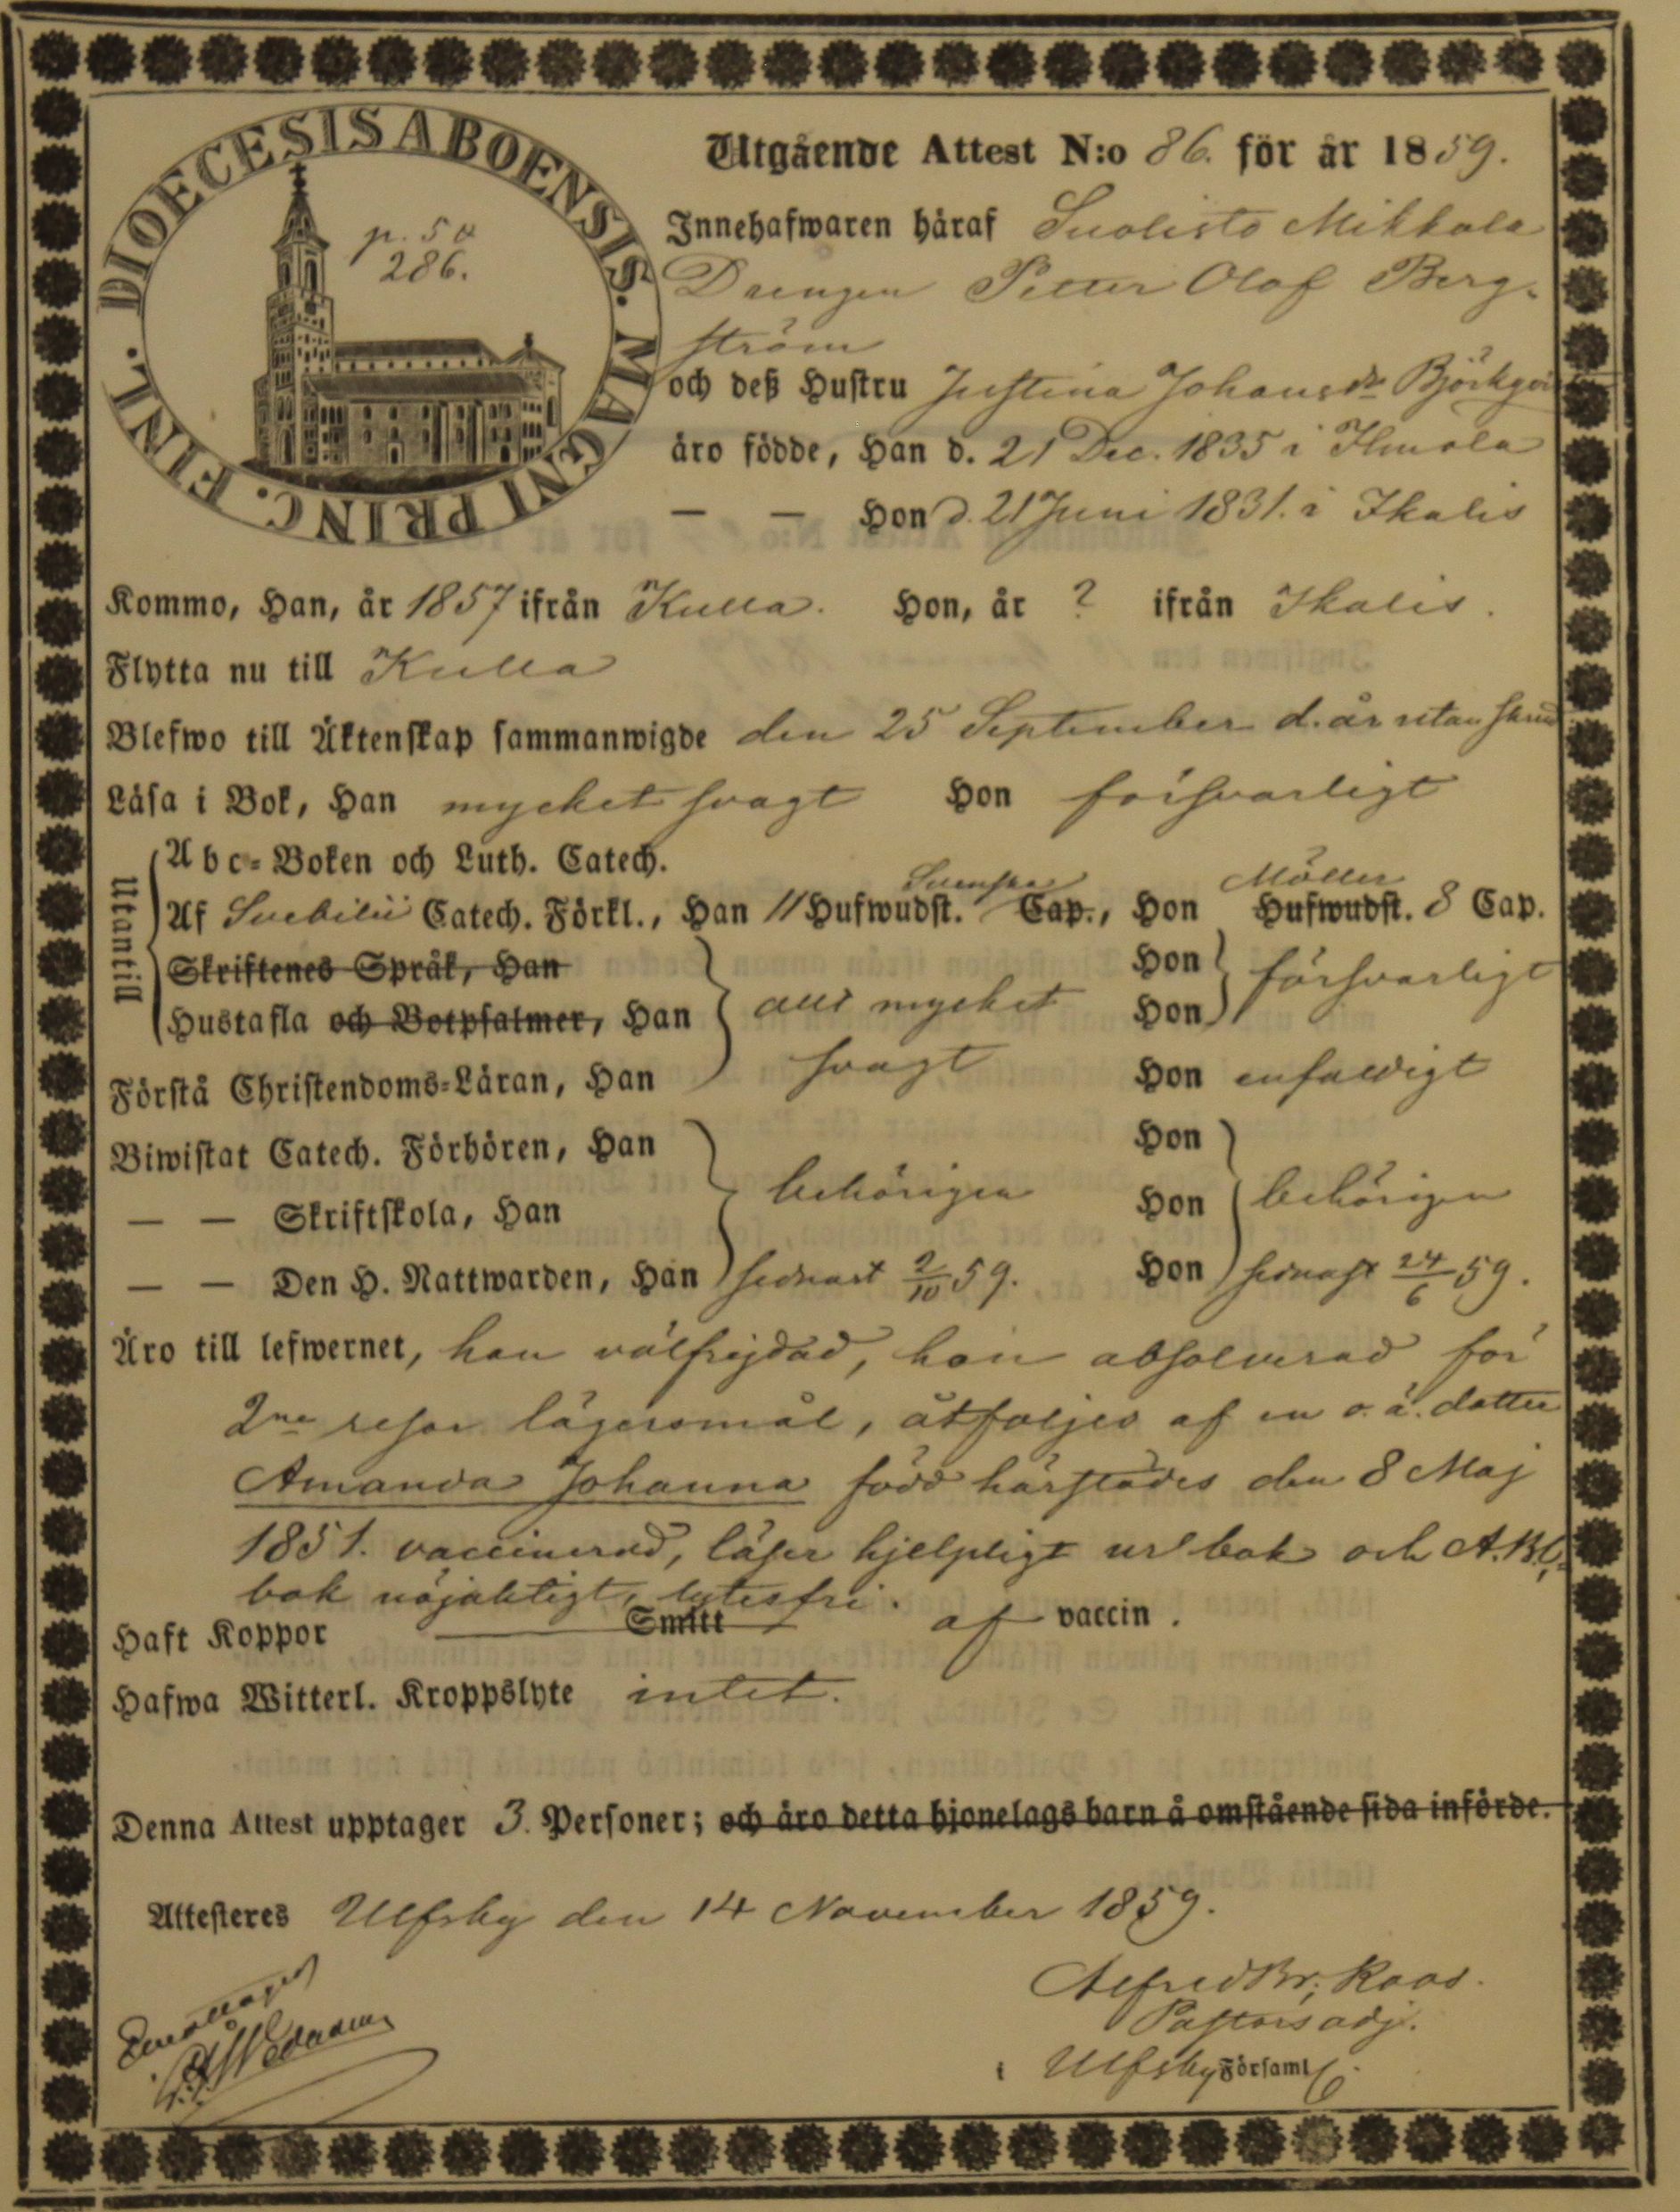 DIOECESIS ABOENSIS. MAGNI PRINC. FINL.
p. 50
286.
Utgående Attest N:o 86. för år 1859.
Innehafwaren häraf Suolisto Mikkola
Drengen Petter Olof Berg-
ström
och deß Hustru Justina Johansdr
äro födde, Han d. 21 Dec. 1835 i Ilmola
— — Hon d. 21 Juni 1831. i Ikalis
Kommo, Han, år 1857 ifrån Kulla. Hon, år ? ifrån Ikalis.
Flytta nu till Kulla
Blefwo till Äktenskap sammanwigde den 25 September d. år utan skrud
Läsa i Bok, Han mycket svagt Hon försvarligt
Utantill
Abc-Boken och Luth. Catech.
Svenska Möller
Af Svebilii Catech. Förkl., Han 11 Hufwudst. Cap., Hon Hufwudst. 8 Cap.
Skriftenes Språk, Han Hon försvarligt
Hustafla och Botpsalmer, Han allt mycket Hon
Förstå Christendoms-Läran, Han svagt Hon enfaldigt
Biwistat Catech. Förhören, Han Hon
— — Skriftskola, Han behörigen Hon behörigen
— — Den H. Nattwarden, Han sednast 2/10 59. Hon sednast 24/6 59.
Äro till lefwernet, han välfrejdad, hon absolverad för
2ne resor lägersmål, åtföljes af en o. ä. dotter
Amanda Johanna född härstädes den 8 Maj
1851. vaccinerad, läser hjelpligt ur bok och A.B.C.
bok nöjaktigt, lytesfri.
Haft Koppor Smitt af vaccin.
Hafwa Witterl. Kroppslyte intet.
Denna Attest upptager 3. Personer; och äro detta hjonelags barn å omstående sida införde.
Attesteres Ulfsby den 14 November 1859.
Alfred Br. Roos.
Pastors adj.
i Ulfsby Församl.